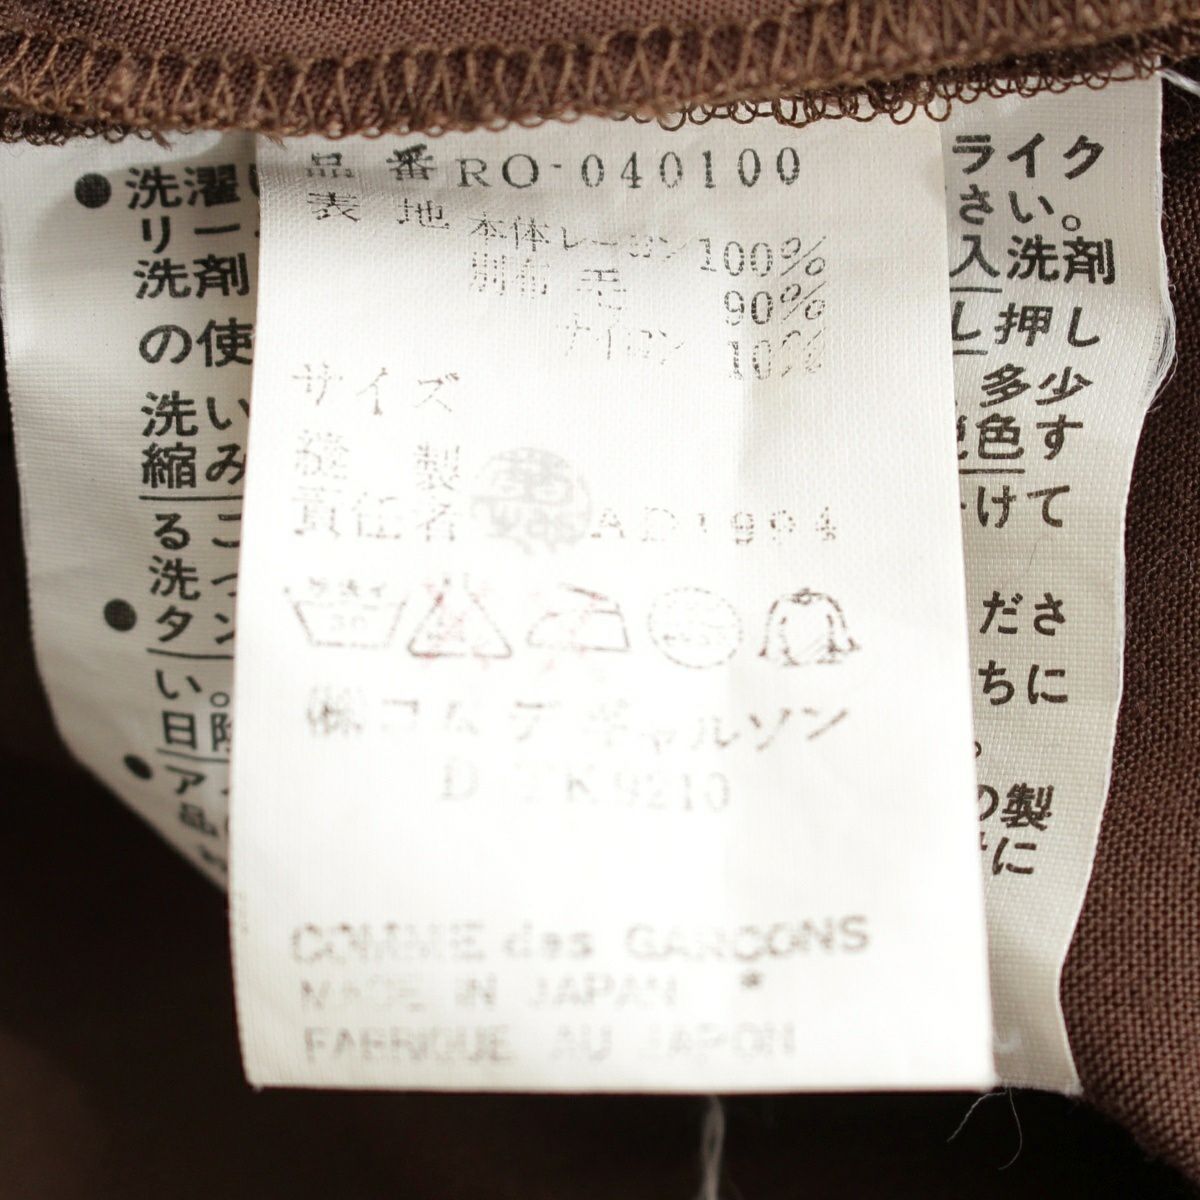 品 番 RO-040100
表 地 本体 レーヨン 100%
別布 毛 90%
ナイロン 10%
サイズ
縫 製
責任者 AD1994
30
㈱コム デ ギャルソン
D-TK9210
COMME des GARÇONS
MADE IN JAPAN *
FABRIQUE AU JAPON
● 洗濯
リー
洗剤
の使
洗い
縮み
るこ
洗っ
● タン
い。
日陰
● ア
品
ライク
さい。
入洗剤
し押し
多少
色す
けて
ださ
ちに
の製
に